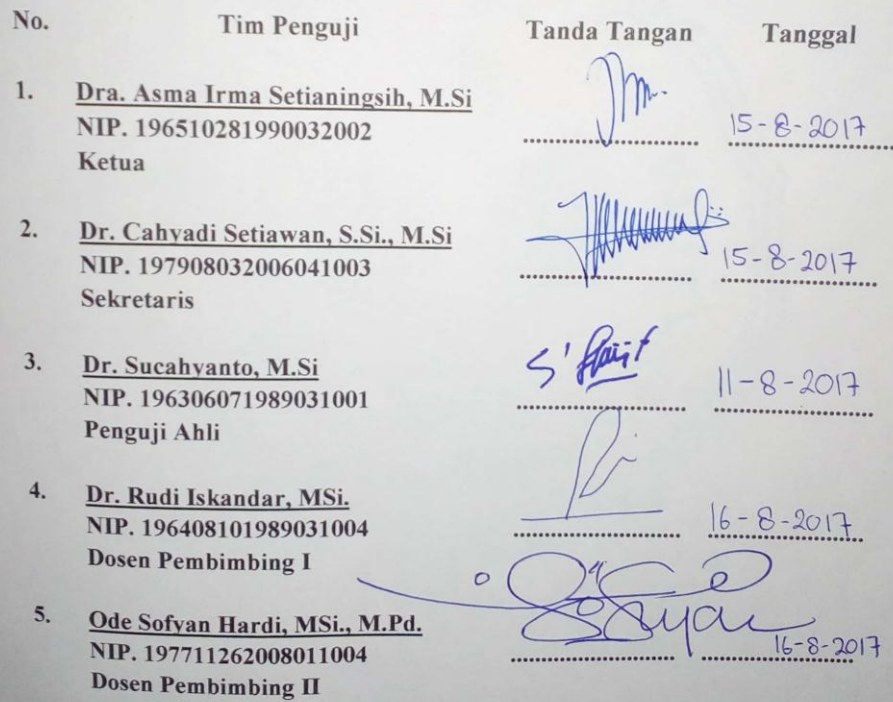 No. Tim Penguji Tanda Tangan Tanggal
1. Dra. Asma Irma Setianingsih, M.Si
NIP. 196510281990032002 15-8-2017
Ketua
2. Dr. Cahyadi Setiawan, S.Si., M.Si
NIP. 197908032006041003 15-8-2017
Sekretaris
3. Dr. Sucahyanto, M.Si
NIP. 196306071989031001 11-8-2017
Penguji Ahli
4. Dr. Rudi Iskandar, MSi.
NIP. 196408101989031004 16-8-2017
Dosen Pembimbing I
5. Ode Sofyan Hardi, MSi., M.Pd.
NIP. 197711262008011004 16-8-2017
Dosen Pembimbing II